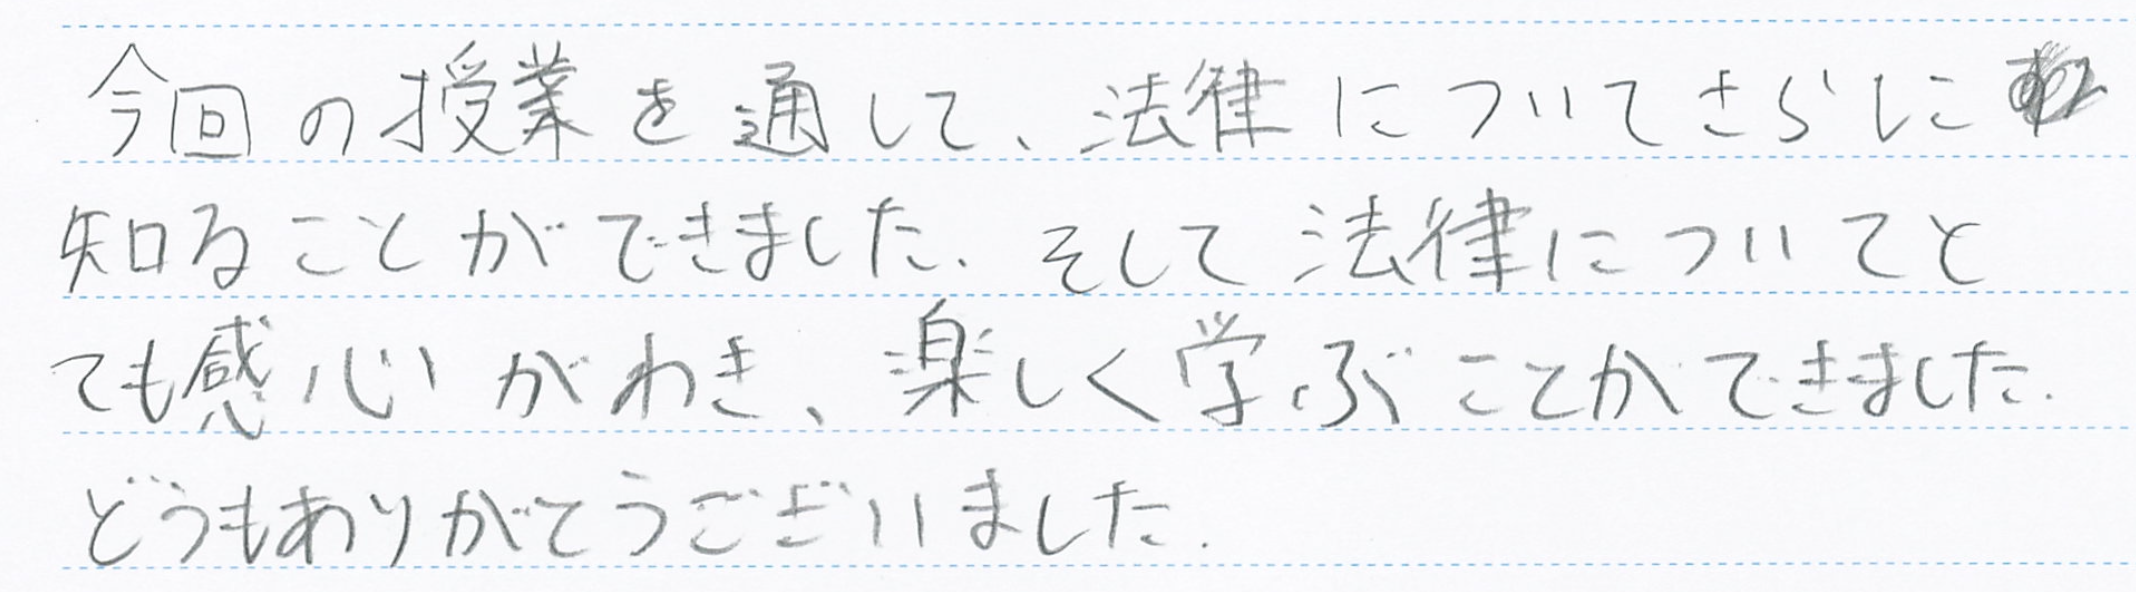 今回の授業を通して、法律についてさらに
知ることができました. そして法律についてと
ても感心がわき、楽しく学ぶことができました.
どうもありがとうございました.